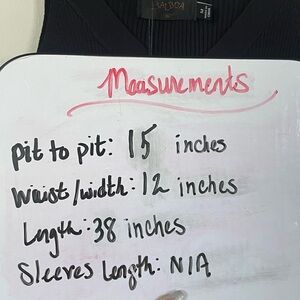 Measurements
pit to pit: 15 inches
Waist/width: 12 inches
Length: 38 inches
Sleeves Length: N/A